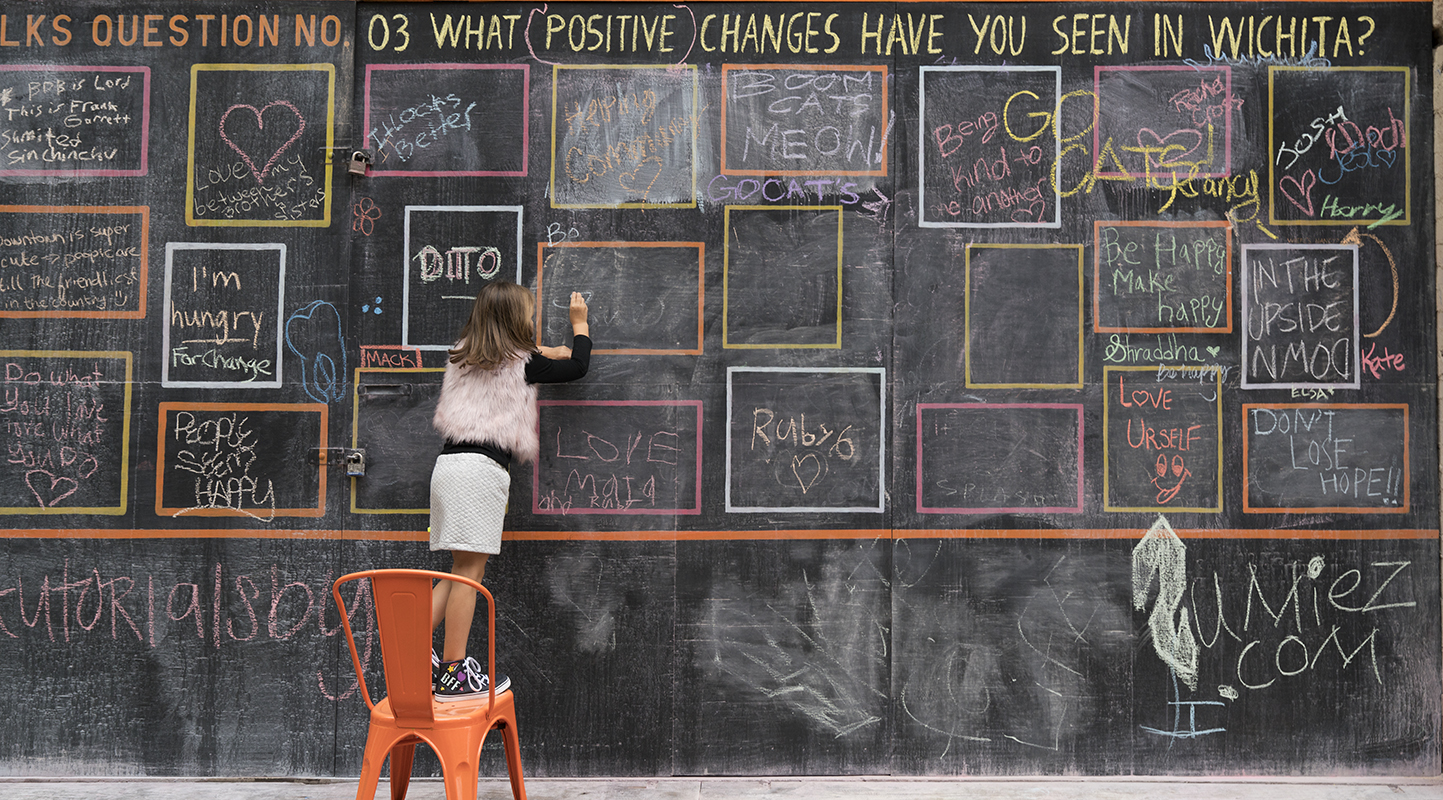 LKS QUESTION NO 03 WHAT (POSITIVE) CHANGES HAVE YOU SEEN IN WICHITA?
BRB is Lord
This is Frank
Garrett
Sinchinchu
Love my
between
Brother's
sisters
It Looks
Better
Happy
Community
BOOM
CATS
MEOW!
GO CAT'S
Being
kind to
one another
GO
CATS
Yclancy
JOSH
Harry
Downtown is super
cute → people are
still the friendliest
in the country!
I'm
hungry
For Change
DITTO
MACK
Be
Be Happy
Make
happy
Shraddha
Be happy
IN THE
UPSIDE
DOWN
Kate
ELSA
Do what
you love
love what
you Do
PEOPLE
SEEM
HAPPY
LOVE
Maia
and
Ruby 6
It
SPLASH
LOVE
URSELF
DON'T
LOSE
HOPE!!
tutorialsby
ZUMiez
.COM
OFF